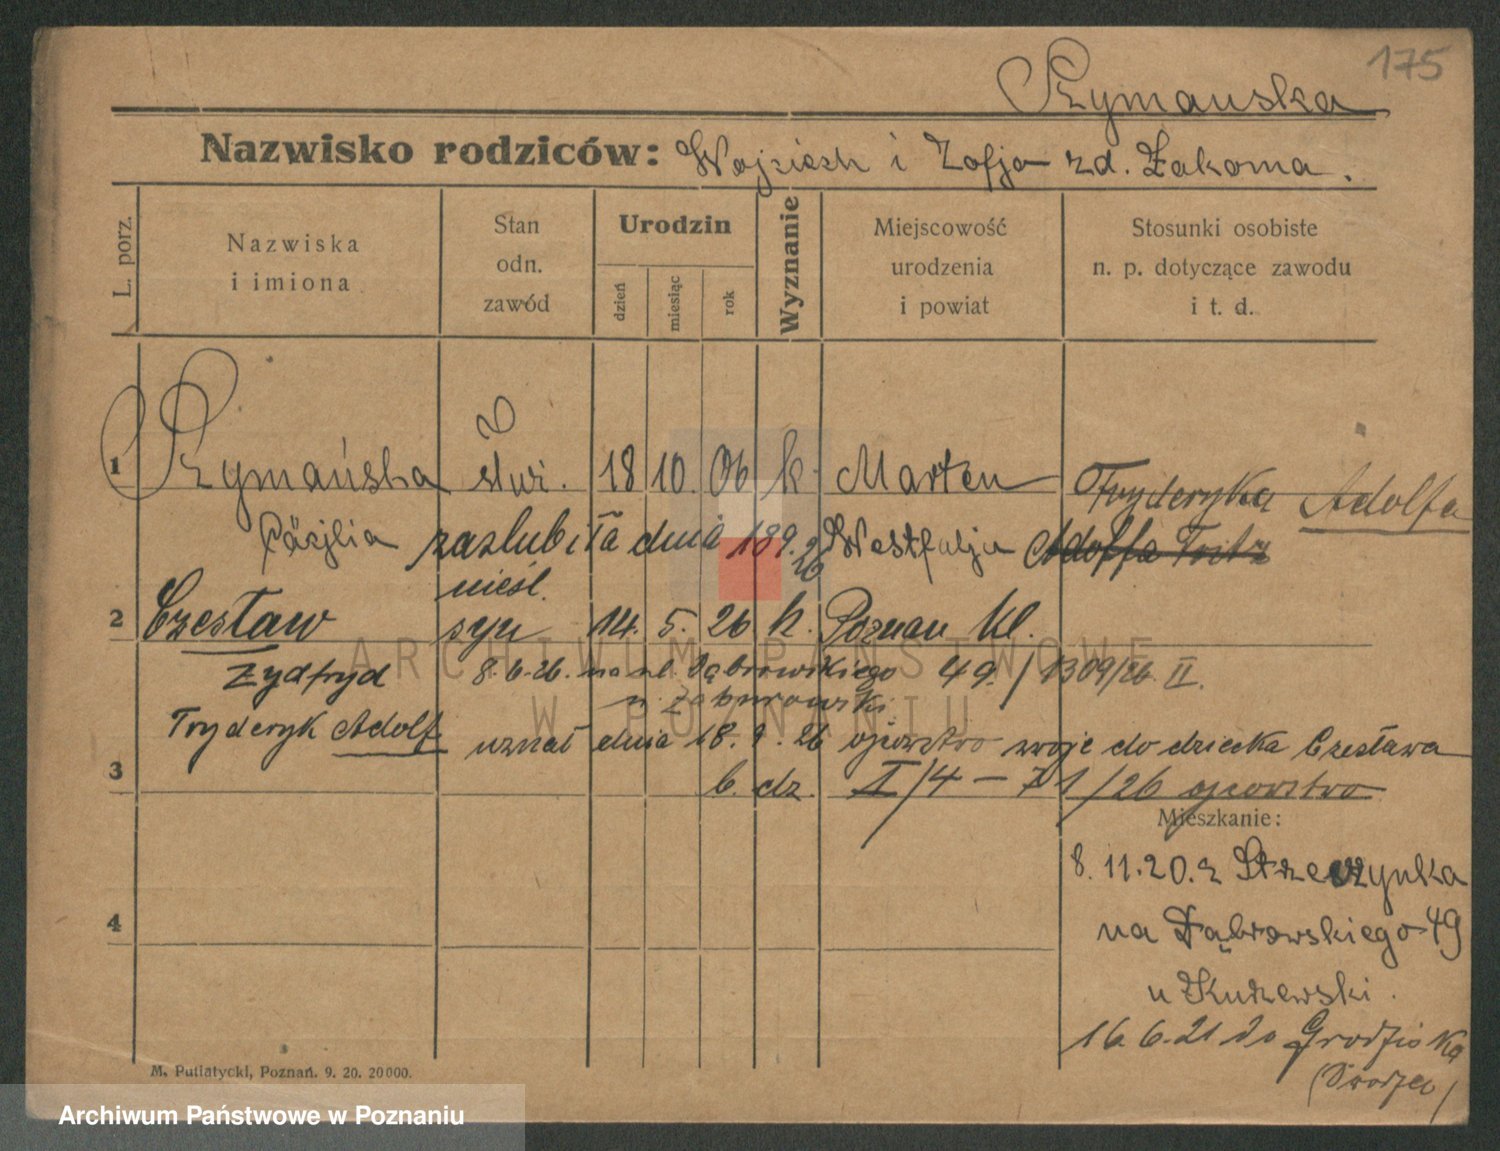 175
Szymańska
Nazwisko rodziców: Wojciech i Zofja zd. Żakoma.
L. porz.
Nazwiska i imiona
Stan odn. zawód
Urodzin
dzień
miesiąc
rok
Wyznanie
Miejscowość urodzenia i powiat
Stosunki osobiste n. p. dotyczące zawodu i t. d.
1 Szymańska służ. 18 10. 06 k. Marten Fryderyka Adolfa
Cäzjlia zaslubiła dnia 18 9. 26 Westfalja Adolfa Fritz
nieśl.
2 Czesław syn 14. 5. 26 k. Poznan Kl.
Zydfryd 8.6.26. na ul. Dąbrowskiego 49. / 1309/26 II.
u
Fryderyk Adolf uznał dnia 18. 9. 26 ojcowstwo swoje do dziecka Czesława
3 b. dz. I/4 — 71/26 ojcowstwo
Mieszkanie:
8.11.20. z Strzeszynka
4 na Dąbrowskiego 49
u
16.6.21 do Grodziska
(Dworzec)
M. Putiatycki, Poznań. 9. 20. 20000.
ARCHIWUM PAŃSTWOWE
W POZNANIU
Archiwum Państwowe w Poznaniu